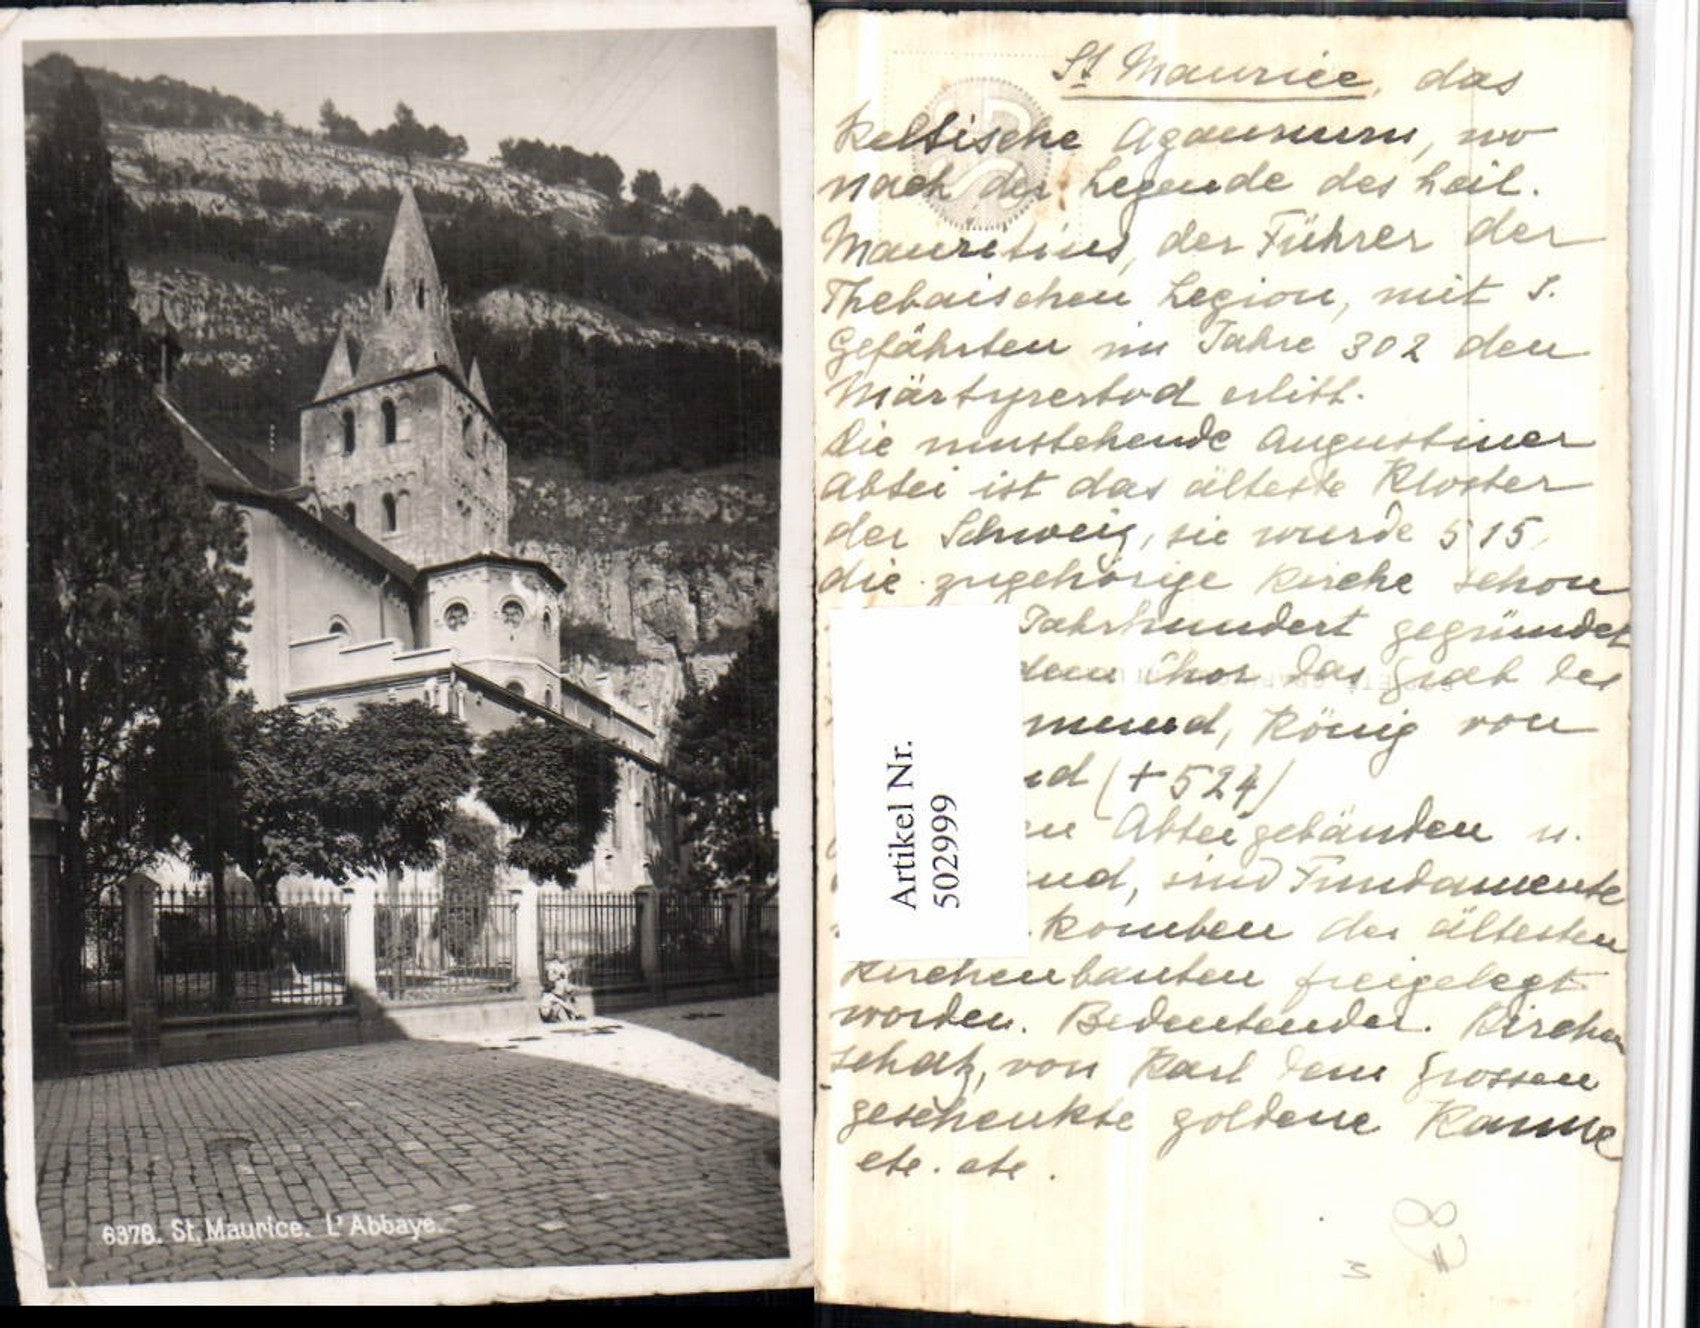 6378. St. Maurice. L'Abbaye.
St Maurice, das
Keltische Agaunum, wo
nach der Legende des heil.
Mauritius, der Führer der
Thebaischen Legion, mit s.
Gefährten im Jahre 302 den
Märtyrertod erlitt.
Die umstehende Augustiner
Abtei ist das älteste Kloster
der Schweiz, sie wurde 515,
die zugehörige Kirche schon
Jahrhundert gegründet
dem Chor das Grab des
mund, König von
nd (+524)
en Abteigebäuden u.
und, sind Fundamente
komben der ältesten
Kirchenbauten freigelegt
worden. Bedeutender Kirchen
schatz, von Karl dem Grossen
geschenkte goldene Kanne
etc. etc.
Artikel Nr.
5029999